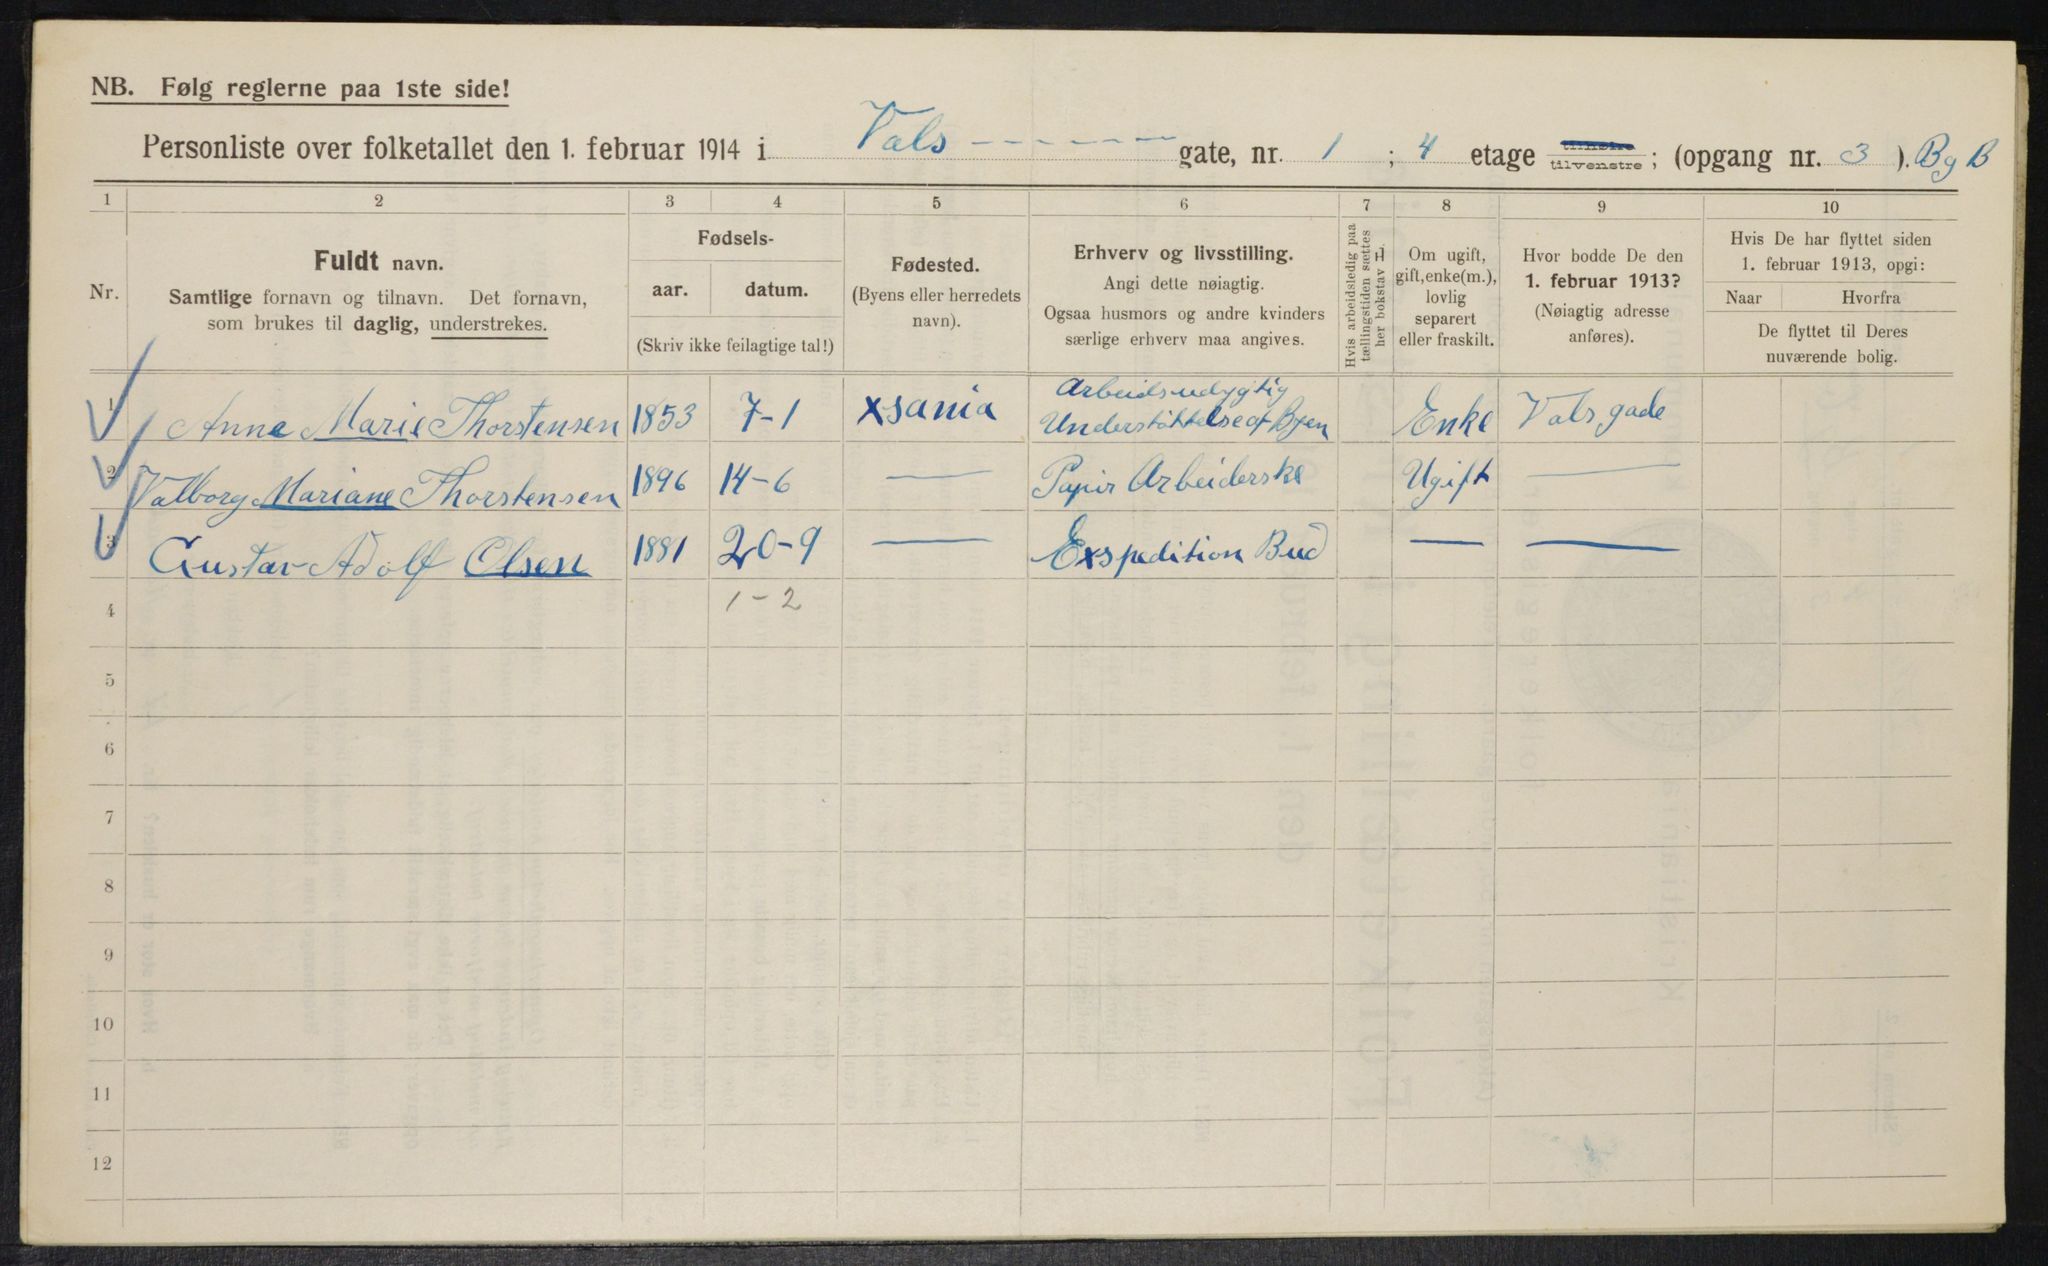 NB. Følg reglerne paa 1ste side!
Personliste over folketallet den 1. februar 1914 i Vals gate, nr. 1 ; 4 etage tilhøire tilvenstre ; (opgang nr. 3 ). Bg B
1 2 3 4 5 6 7 8 9 10
Nr.
Fuldt navn.
Samtlige fornavn og tilnavn. Det fornavn,
som brukes til daglig, understrekes.
Fødsels-
aar. datum.
(Skriv ikke feilagtige tal!)
Fødested.
(Byens eller herredets
navn).
Erhverv og livsstilling.
Angi dette nøiagtig.
Ogsaa husmors og andre kvinders
særlige erhverv maa angives.
Hvis arbeidsledig paa
tællingstiden sættes
her bokstav L.
Om ugift,
gift, enke(m.),
lovlig
separert
eller fraskilt.
Hvor bodde De den
1. februar 1913?
(Nøiagtig adresse
anføres).
Hvis De har flyttet siden
1. februar 1913, opgi:
Naar Hvorfra
De flyttet til Deres
nuværende bolig.
1 Anne Marie Thorstensen 1853 7-1 Xsania Arbeidsudygtig
Understøttelse af Byen Enke Vals gade
2 Valborg Mariane Thorstensen 1896 14-6 — Papir Arbeiderske Ugift —
3 Gustav Adolf Olsen 1881 20-9 — Exspedition Bud — —
4 1-2
5
6
7
8
9
10
11
12